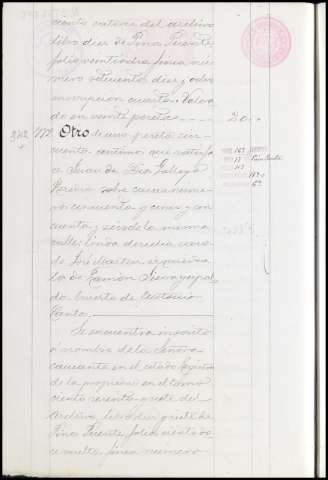 ciento catorce del archivo
libro diez de Pino Puente
folio veintiocho finca nú-
mero setecientos diez y ocho
inscripción cuarta. Valora
do en veinte pesetas 20..
172 Otro de una peseta cin-
cuenta centimos que satisfa
ce Juan de Dios Gallego
Pereira sobre casa núme-
ro cincuenta y cinco y cin
cuenta y seis de la misma
calle: linda derecha casa
de José Martin, izquierda
la de Ramón y espal-
da huerto de Antonio
Canto.
Se encuentra inscrito
á nombre de la Señora
causante en el citado Registro
de la propiedad en el tomo
ciento sesenta y siete del
Archivo, libro diez y siete de
Pinos Puente, folio ciento do
ce vuelto, finca número
167
17
112